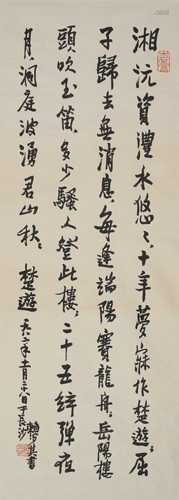 湘沅資澧水悠々十年夢寐作楚遊屈
子歸去無消息每逢端陽賽龍舟岳陽樓
頭吹玉笛多少騷人登此樓二十五絃彈夜
月洞庭波湧君山秋 楚遊
一九六二年十一月二十八日于長沙
賴少其書